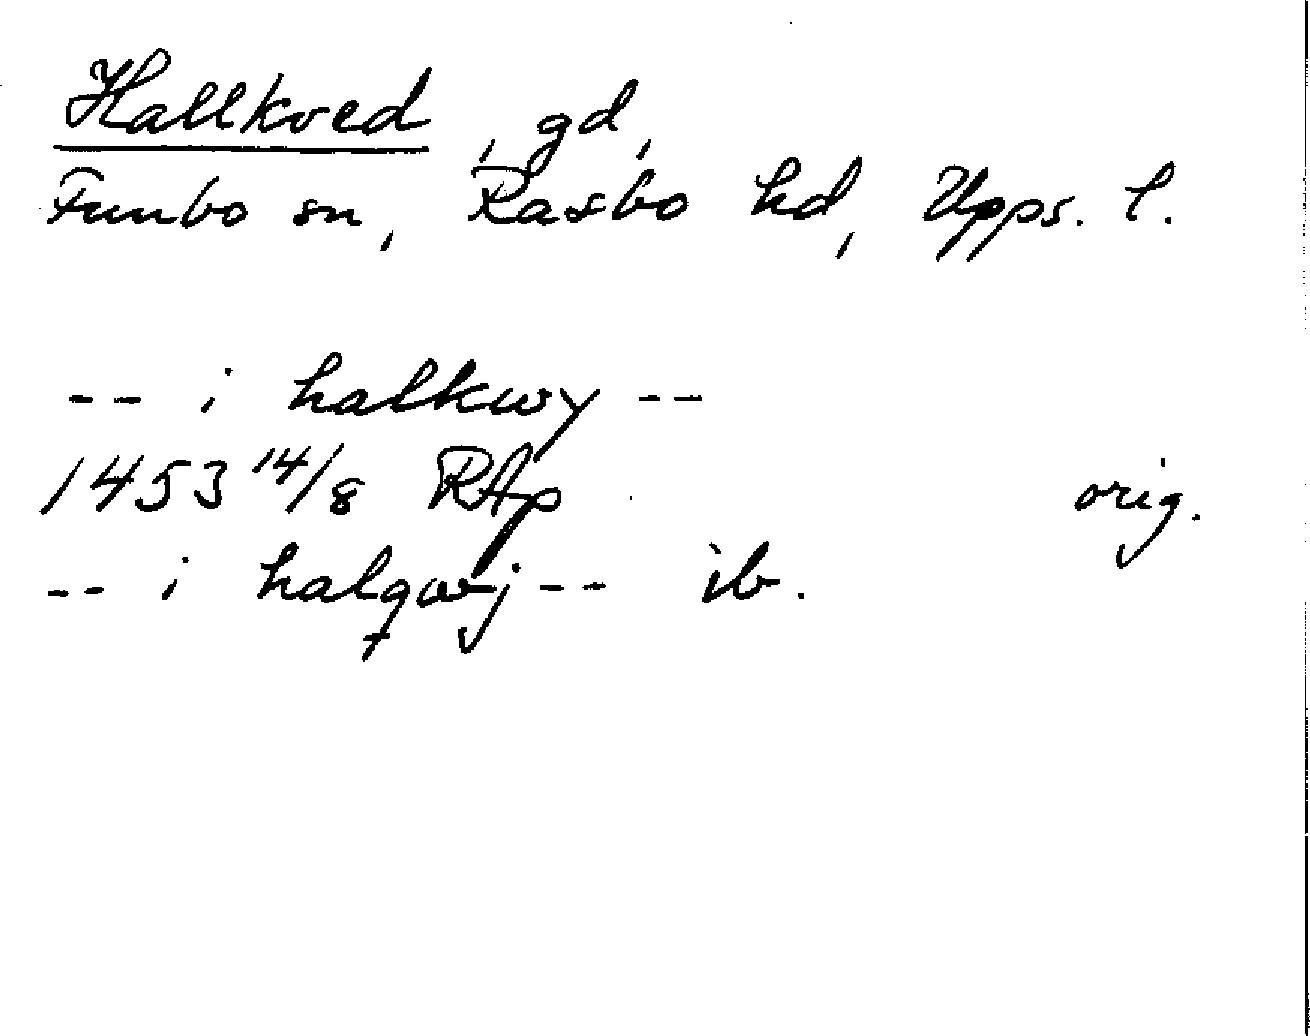 Hallkved, gd,
Funbo sn, Rasbo hd, Upps. l.
-- i halkwy --
1453 14/8 RAp orig.
-- i halqwij -- ib.